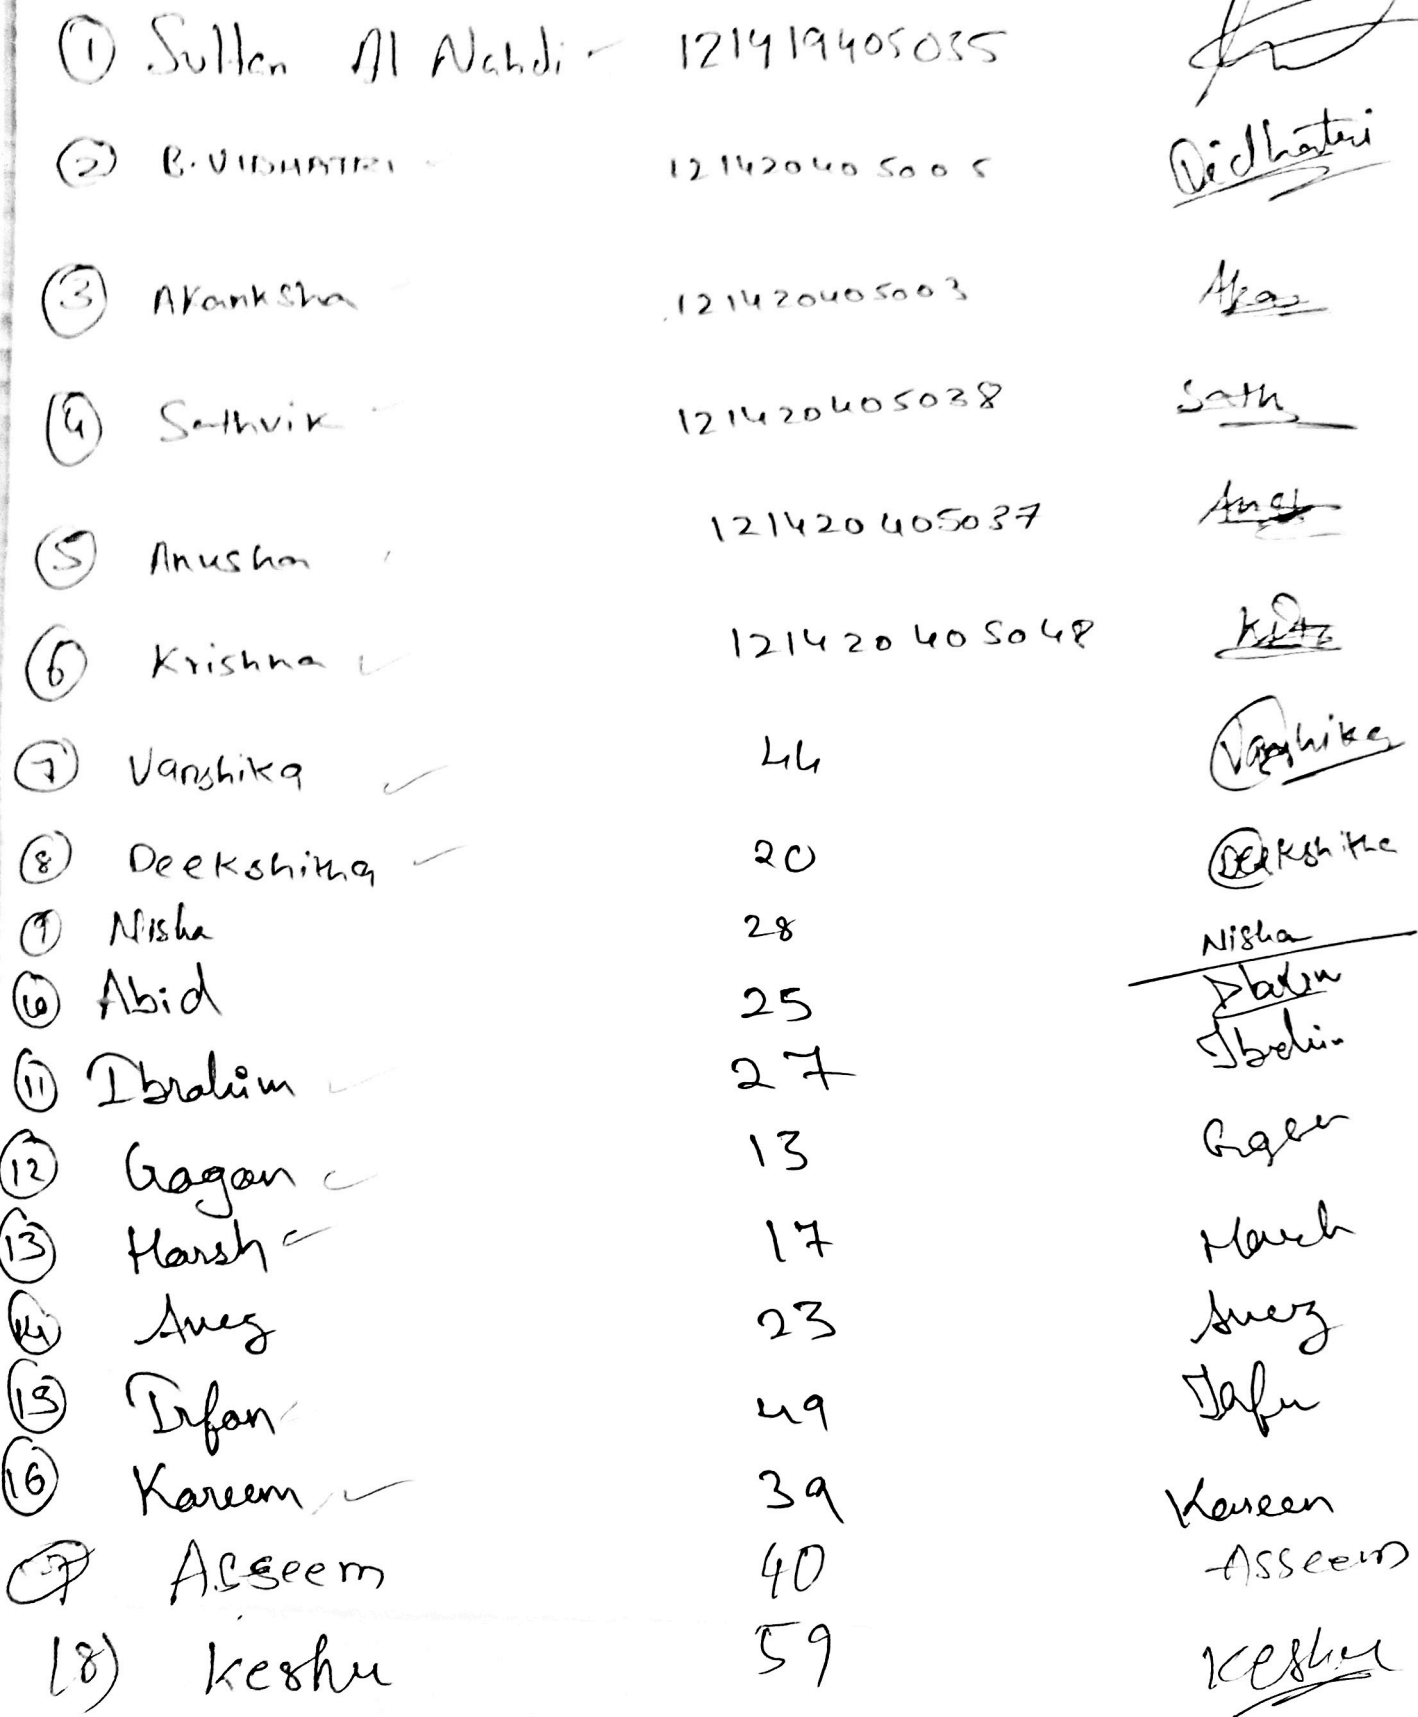 1 Sultan Al Nahdi - 121419405035
2 B. VIDHATRI - 121420405005 Vidhatri
3 Akanksha 121420405003
4 Sathvik 121420405038 Sath
5 Anusha 121420405037
6 Krishna 121420405048
7 Vanshika 44 Vanshika
8 Deekshitha 20 Deekshitha
9 Nisha 28 Nisha
10 Abid 25
11 Ibrahim 27 Ibrahim
12 Gagan 13 Gagan
13 Harsh 17 Harsh
14 Avez 23 Avez
15 Irfan 49
16 Kareem 39 Kareem
17 Asseem 40 Asseem
18) Keshu 59 Keshu